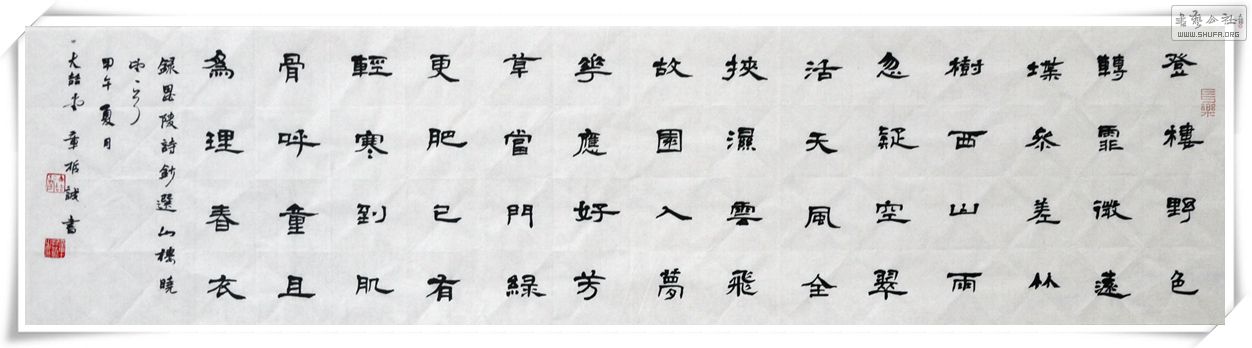 登樓野色
轉霏微遠
堞參差林
樹西山雨
忽疑空翠
活天風全
挾濕雲飛
故園入夢
華應好芳
草當門綠
更肥已有
輕寒到肌
骨呼童且
為理春衣
錄毘陵詩鈔選山樓曉
甲午夏月
章哲誠書
書藝公社
WWW.SHUFA.ORG